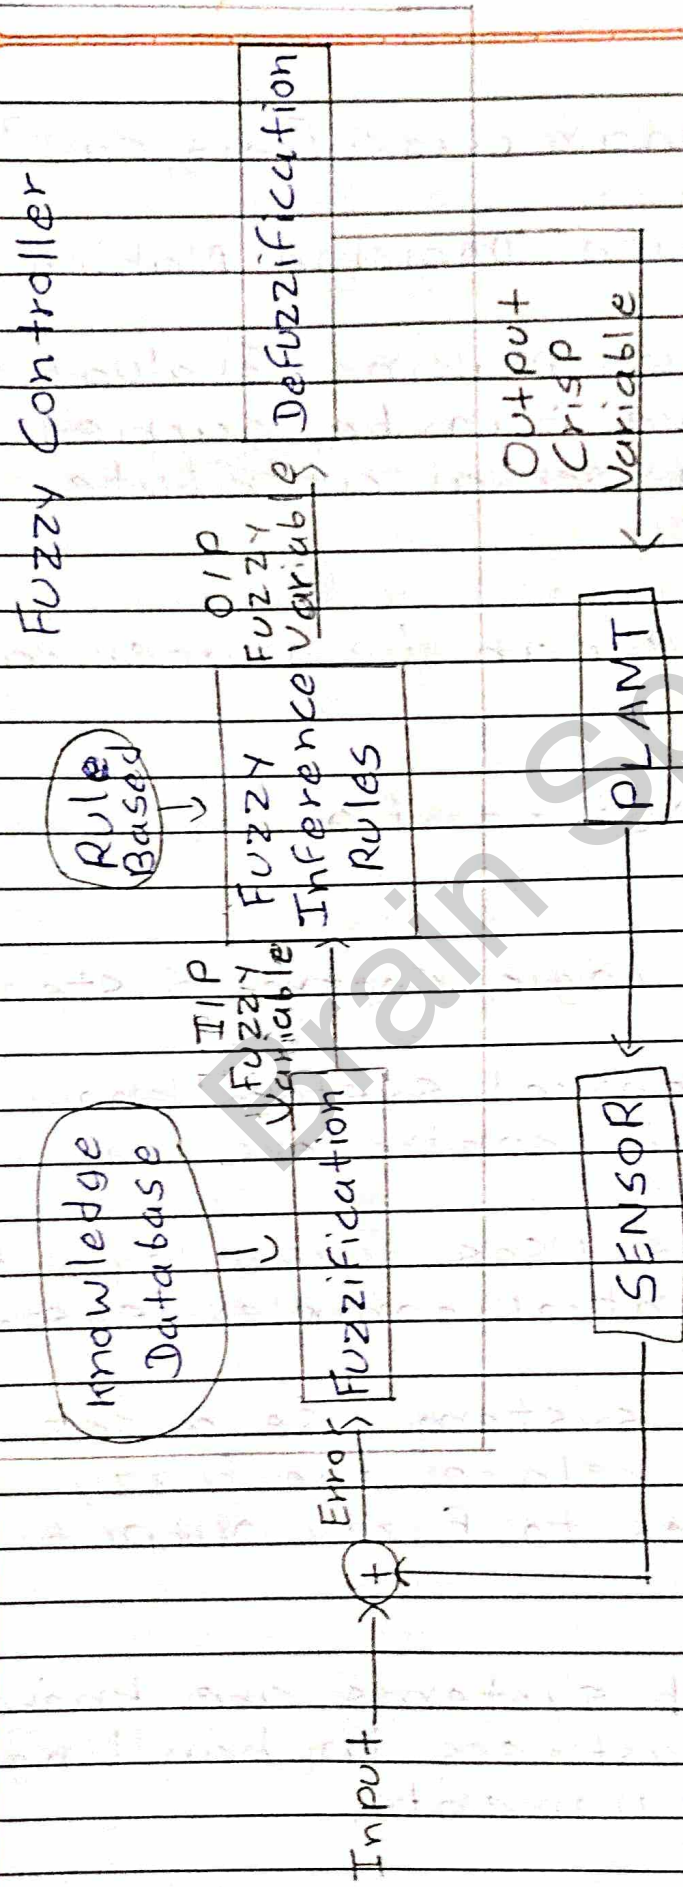 Fuzzy Controller
Knowledge
Database
Rule
Based
Input
+
Error
Fuzzification
I/P
Fuzzy
Variable
Fuzzy
Inference
Rules
O/P
Fuzzy
Variable
Defuzzification
Output
Crisp
Variable
PLANT
SENSOR
Brain